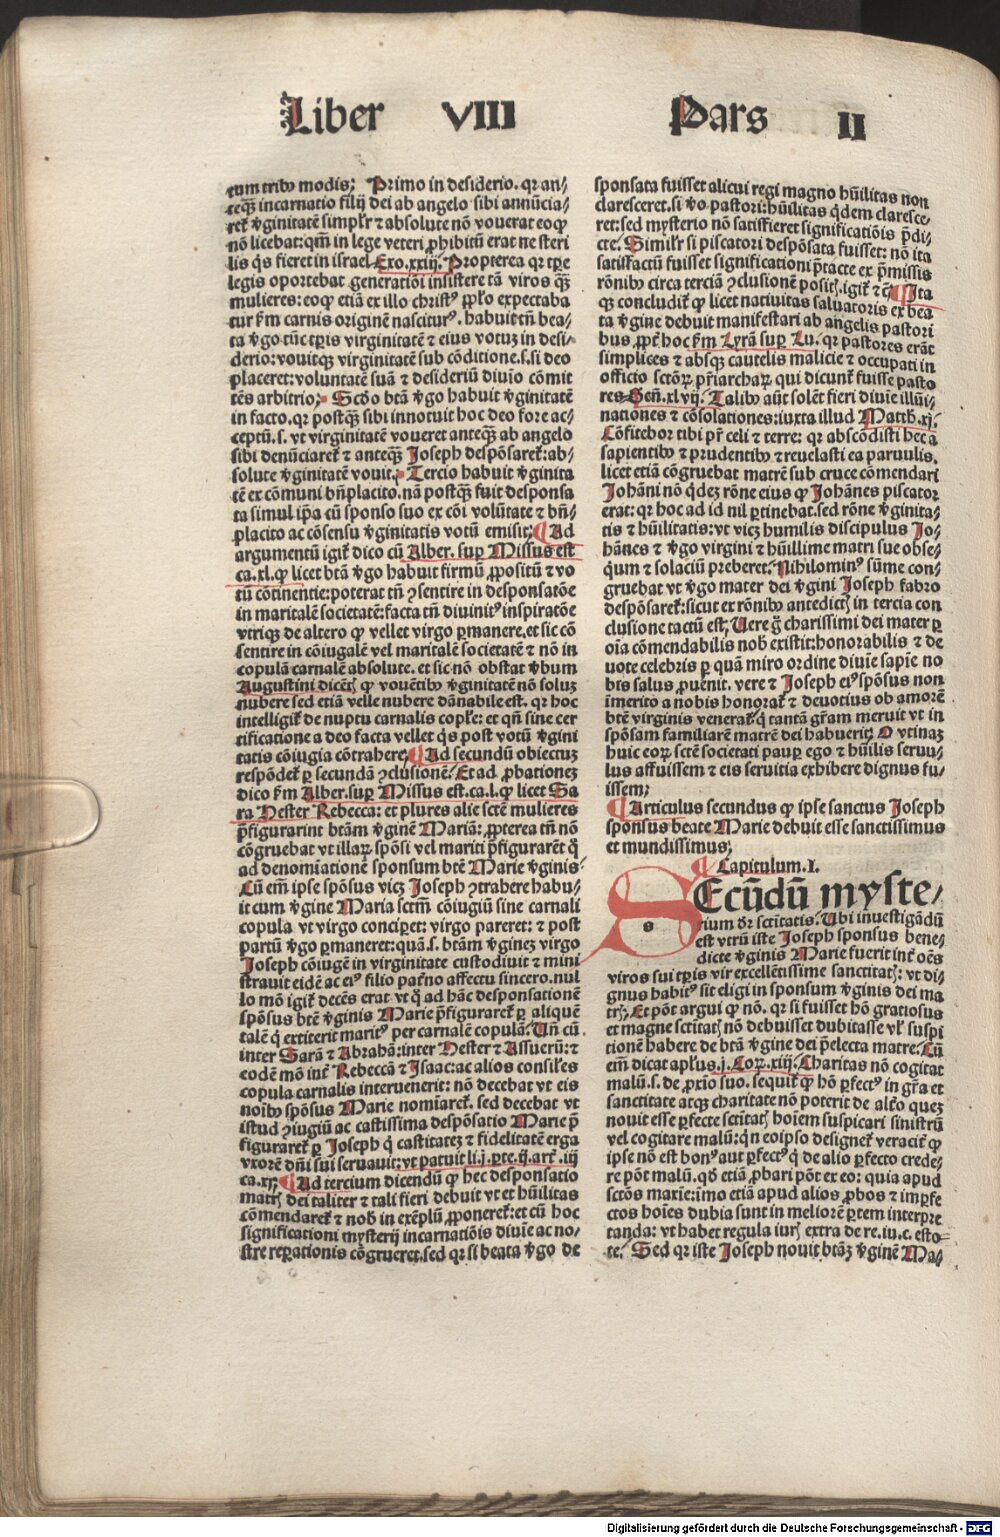 Liber VIII Pars II
tum tribꝰ modis; Primo in desiderio. qꝛ an/
teqᷓꝫ incarnatio filij dei ab angelo sibi annūcia/
reť ꝟginitatē simplꝛ̄ ⁊ absolute nō vouerat eo ꝙ
nō licebat: qm̄ in lege veteri ꝓhibitū erat ne steri
lis q̇s fieret in israel Exo. xxiij. Propterea qꝛ tꝑe
legis oportebat generatiōi insistere tā viros qᷓꝫ
mulieres: eo ꝙ etiā ex illo christꝰ ꝓpl̓o expectaba
tur ẜm carnis originē nasciturꝰ. habuit tn̄ bea/
ta ꝟgo tūc tꝑis virginitatē ⁊ eius votuꝫ in desi/
derio: vouitqꝫ virginitatē sub cōditione. s. si deo
placeret: voluntatē suā ⁊ desideriū diuīo cōmit
tēs arbitrio; Scd̓o btā ꝟgo habuit ꝟginitatē
in facto. qꝛ postqᷓꝫ sibi innotuit hoc deo fore ac/
ceptū. s. vt virginitatē voueret anteqᷓꝫ ab angelo
sibi denūciareť ⁊ anteqᷓꝫ Joseph despōsareť: ab/
solute ꝟginitatē vouit; Tercio habuit ꝟginita
tē ex cōmuni bn̄placito. nā postqᷓꝫ fuit desponsa
ta simul ip̄a cū sponso suo ex cōi volūtate ⁊ bn̄/
placito ac cōsensu ꝟginitatis votū emisit; ¶ Ad
argumentū igiť dico cū Alber. suꝑ Missus est
ca. xl. ꝙ licet btā ꝟgo habuit firmū ꝓpositū ⁊ vo
tū cōtinentie: poterat tn̄ ↄsentire in desponsatōe
in maritalē societatē: facta tn̄ diuinitꝰ inspiratōe
vtriqꝫ de altero ꝙ vellet virgo ꝑmanere. et sic cō
sentire in cōiugalē vel maritalē societatē ⁊ nō in
copulā carnalē absolute. et sic nō obstat ꝟbum
Augustini dicēt̄ ꝙ vouētibꝰ ꝟginitatē nō soluꝫ
nubere sed etiā velle nubere dānabile est. qꝛ hoc
intelligiť de nuptu carnalis copl̓e: et qn̄ sine cer
tificatione a deo facta vellet q̇s post votū ꝟgini
tatis cōiugia cōtrahere; ¶ Ad secundū obiectuꝫ
respōdeť ꝑ secundā ↄclusionē. Et ad ꝓbationeꝫ
dico ẜm Alber. suꝑ Missus est. ca. l. ꝙ licet Sa
ra Hester Rebecca: et plures alie sctē mulieres
p̄figurarint btām ꝟginē Mariā: ꝓpterea tn̄ nō
cōgruebat vt illaꝝ spōsi vel mariti p̄figurarēt q̄
ad denoīationē sponsum btē Marie ꝟginis.
Cū em̄ ipse spōsus viꝫ Joseph ↄtrahere habu/
it cum ꝟgine Maria sctm̄ cōiugiū sine carnali
copula vt virgo conciꝑet: virgo pareret: ⁊ post
partū ꝟgo ꝑmaneret: quā. s. btām ꝟgineꝫ virgo
Joseph cōiugē in virginitate custodiuit ⁊ mini
strauit eidē ac eiꝰ filio pat̓no affectu sincero. nul
lo mō igiť decēs erat vt q̇̄ ad hāc desponsationē
spōsus btē ꝟginis Marie p̄figurareť ꝑ aliquē
talē q̇ extiterit maritꝰ per carnalē copulā. Un̄ cū
inter Sarā ⁊ Abrahā: inter Hester ⁊ Assuerū: ⁊
eodē mō int̓ Rebeccā ⁊ Isaac: ac alios consil̓es
copula carnalis interuenerit: nō decebat vt eis
noībꝰ spōsus Marie nomīareť. sed decebat vt
istud ↄiugiū ac castissima despōsatio Marie p̄
figurareť ꝑ Joseph q̇ castitateꝫ ⁊ fidelitatē erga
vxorē dn̄i sui seruauit: vt patuit li. j. ꝑte. ij. art̓. iij
ca. xx; ¶ Ad tercium dicendū ꝙ hec desponsatio
matꝝ dei taliter ⁊ tali fieri debuit vt et hūilitas
cōmendareť ⁊ nob̓ in exēplū ꝓponereť: et cū hoc
significationi mysterij incarnatiōis diuīe ac no/
stre reꝑationis cōgrueret. sed qꝛ si beata ꝟgo de
sponsata fuisset alicui regi magno hūilitas non
claresceret. si ꝟo pastori: hūilitas q̇dem claresce/
ret: sed mysterio nō satisfieret significatiōis p̄di/
cte. Simil̓r si piscatori despōsata fuisset: nō ita
satisfactū fuisset significationi p̄tacte ex p̄missis
rōnibꝰ circa terciā ↄclusionē positꝝ. igiť ⁊ cͣ. ¶ Ita
qꝫ concludiť ꝙ licet natiuitas saluatoris ex bea
ta ꝟgine debuit manifestari ab angelis pastori
bus, ꝓpt̓ hoc ẜm Lyrā suꝑ Lu. qꝛ pastores erāt
simplices ⁊ absqꝫ cautelis malicie ⁊ occupati in
officio sctōꝝ pr̄iarchaꝝ qui dicunť fuisse pasto
res Gen̄. xlvij. Talibꝰ aūt solēt fieri diuīe illūi/
nationes ⁊ cōsolationes: iuxta illud Matth. xj.
Cōfitebor tibi pr̄ celi ⁊ terre: qꝛ abscōdisti hec a
sapientibꝰ ⁊ prudentibꝰ ⁊ reuelasti ea paruulis.
licet etiā cōgruebat matrē sub cruce cōmendari
Johāni nō q̇deꝫ rōne eius ꝙ Johānes piscator
erat: qꝛ hoc ad id nil ꝑtinebat. sed rōne ꝟginita/
tis ⁊ hūilitatis: vt viꝫ humilis discipulus Jo/
hānes ⁊ ꝟgo virgini ⁊ hūillime matri sue obse/
q̇um ⁊ solaciū preberet. Nihilominꝰ sūme con/
gruebat vt ꝟgo mater dei ꝟgini Joseph fabro
despōsareť: sicut ex rōnibꝰ antedictꝝ in tercia con
clusione tactū est; Uere g̊ charissimi dei mater ꝑ
oīa cōmendabilis nob̓ existit: honorabilis ⁊ de
uote celebris ꝑ quā miro ordine diuīe sapīe no
bis salus ꝓuenit. vere ⁊ Joseph eiꝰ spōsus non
īmerito a nobis honorať ⁊ deuotius ob amorē
btē virginis venerať q̇ tantā gr̄am meruit vt in
spōsam familiarē matrē dei habuerit; O vtinaꝫ
huic eoꝝ sctē societati pauꝑ ego ⁊ hūilis seruu/
lus affuissem ⁊ eis seruitia exhibere dignus fu/
issem;
¶ Articulus secundus ꝙ ipse sanctus Joseph
sponsus beate Marie debuit esse sanctissimus
et mundissimus;
¶ Capitulum. I.
Secūdū myste/
rium dr̄ sctītatis. Ubi inuestigādū
est vtrū iste Joseph sponsus bene/
dicte ꝟginis Marie fuerit int̓ oēs
viros sui tꝑis vir excellētissime sanctitatꝝ: vt di/
gnus habitꝰ sit eligi in sponsum ꝟginis dei ma
trꝝ. Et pōt argui ꝙ nō. qꝛ si fuisset hō gratiosus
et magne sctītatꝝ nō debuisset dubitasse vl̓ suspi
tionē habere de btā ꝟgine dei p̄electa matre. Cū
em̄ dicat apl̓us. j. Coꝝ. xiij. Charitas nō cogitat
malū. s. de ꝓxīo suo. sequiť ꝙ hō ꝑfectꝰ in gr̄a et
sanctitate atqꝫ charitate nō poterit de alt̓o queꝫ
nouit esse ꝑfecte sctītatꝝ hoīem suspicari sinistrū
vel cogitare malū: q̇n eoipso designeť veracit̓ ꝙ
ipse nō est honꝰ aut ꝑfectꝰ q̇ de alio ꝑfecto crede/
re pōt malū. qd̓ etiā ꝓbari pōt ex eo: quia apud
sctōs maxīe: imo etiā apud alios ꝓbos ⁊ imꝑfe
ctos hoīes dubia sunt in meliorē ꝑtem interpre
tanda: vt habet regula iurꝝ extra de re. iu. c. esto/
te. Sed qꝛ iste Joseph nouit btāꝫ ꝟginē Ma/
Digitalisierung gefördert durch die Deutsche Forschungsgemeinschaft - DFG